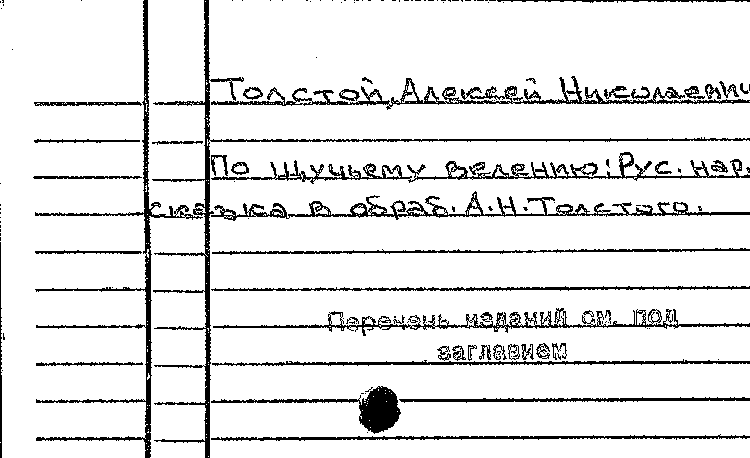 Толстой, Алексей Николаевич
По щучьему велению: Рус. нар.
сказка в обраб. А.Н.Толстого.
Перечень изданий см. под
заглавием